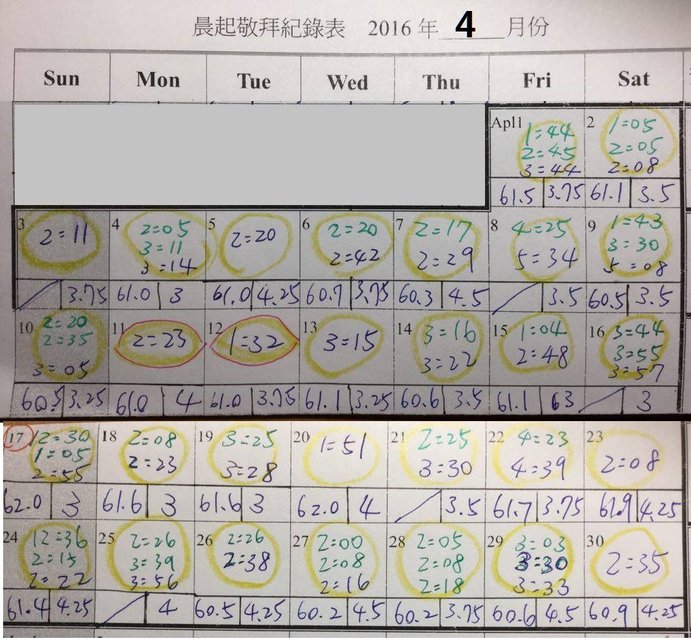 晨起敬拜紀錄表 2016 年 4 月份
Sun Mon Tue Wed Thu Fri Sat
Apl1 2
1=44 1=05
2=45 2=05
3=44 2=08
61.5 3.75 61.1 3.5
3 4 5 6 7 8 9
2=11 2=05 2=20 2=20 2=17 4=25 1=43
3=11 2=42 2=29 5=34 3=30
3=14 5=08
3.75 61.0 3 61.0 4.25 60.7 3.75 60.3 4.5 3.5 60.5 3.5
10 11 12 13 14 15 16
2=20 2=23 1=32 3=15 3=16 1=04 3=44
2=35 3=22 2=48 3=55
3=05 3=57
60.5 3.25 61.0 4 61.0 3.75 61.1 3.25 60.6 3.5 61.1 63 3
17 18 19 20 21 22 23
12=30 2=08 3=25 1=51 2=25 4=23 2=08
1=05 2=23 3=28 3=30 4=39
2=55
62.0 3 61.6 3 61.6 3 62.0 4 3.5 61.7 3.75 61.9 4.25
24 25 26 27 28 29 30
12=36 2=26 2=26 2=00 2=05 3=03 2=35
2=15 3=39 2=38 2=08 2=08 3=30
2=22 3=56 2=16 2=18 3=33
61.4 4.25 4 60.5 4.25 60.2 4.5 60.2 3.75 60.6 4.5 60.9 4.25